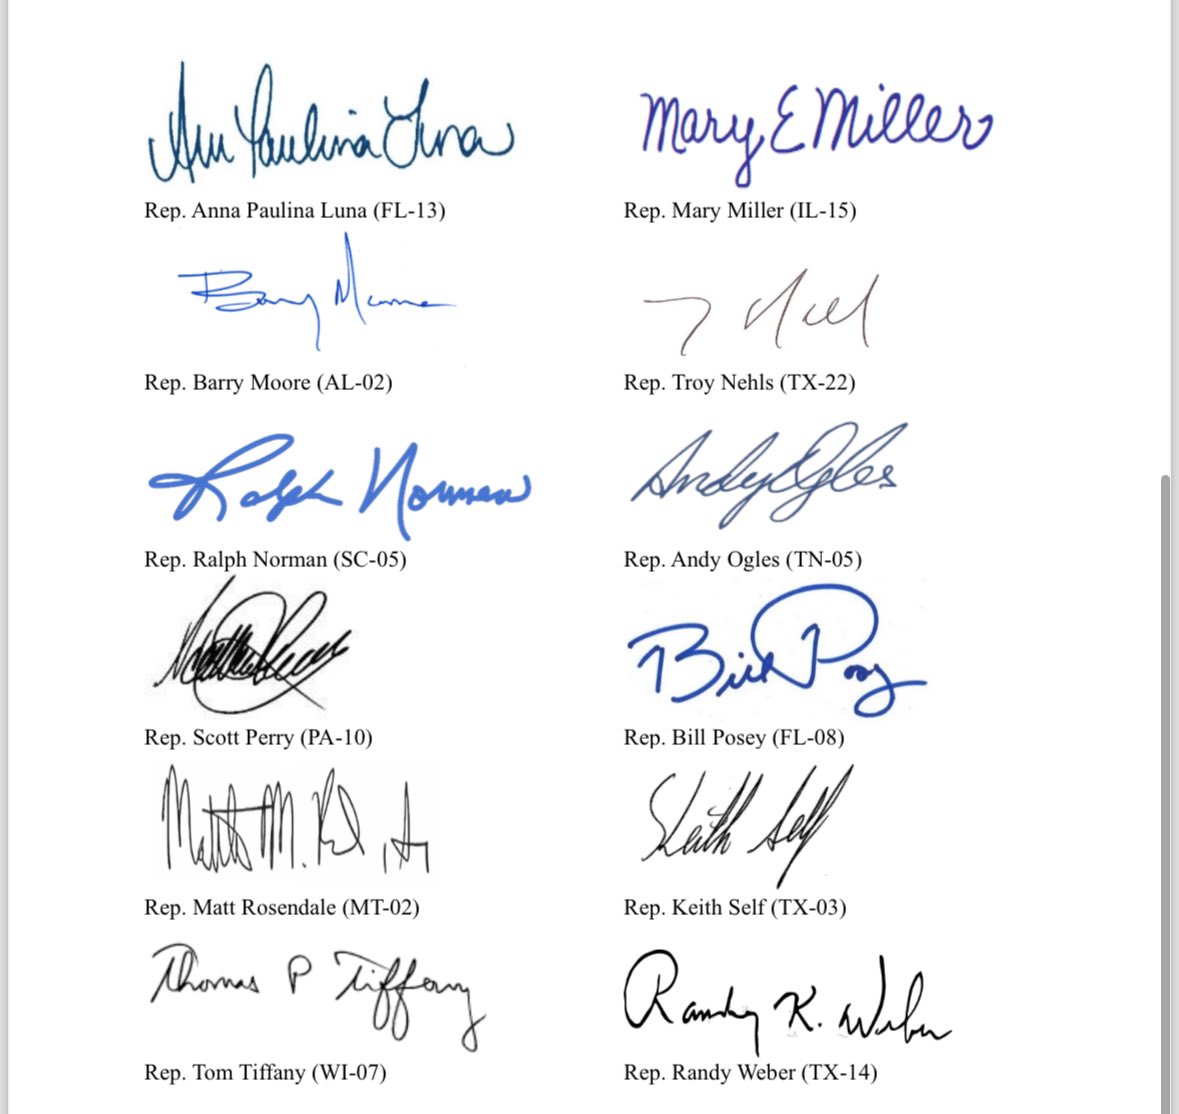 Ann Paulina Luna
Mary E Miller
Rep. Anna Paulina Luna (FL-13)
Rep. Mary Miller (IL-15)
Barry Moore
Rep. Barry Moore (AL-02)
Rep. Troy Nehls (TX-22)
Ralph Norman
Andy Ogles
Rep. Ralph Norman (SC-05)
Rep. Andy Ogles (TN-05)
Bill Posey
Rep. Scott Perry (PA-10)
Rep. Bill Posey (FL-08)
Matt M.
Keith Self
Rep. Matt Rosendale (MT-02)
Rep. Keith Self (TX-03)
Thomas P Tiffany
Randy K. Weber
Rep. Tom Tiffany (WI-07)
Rep. Randy Weber (TX-14)